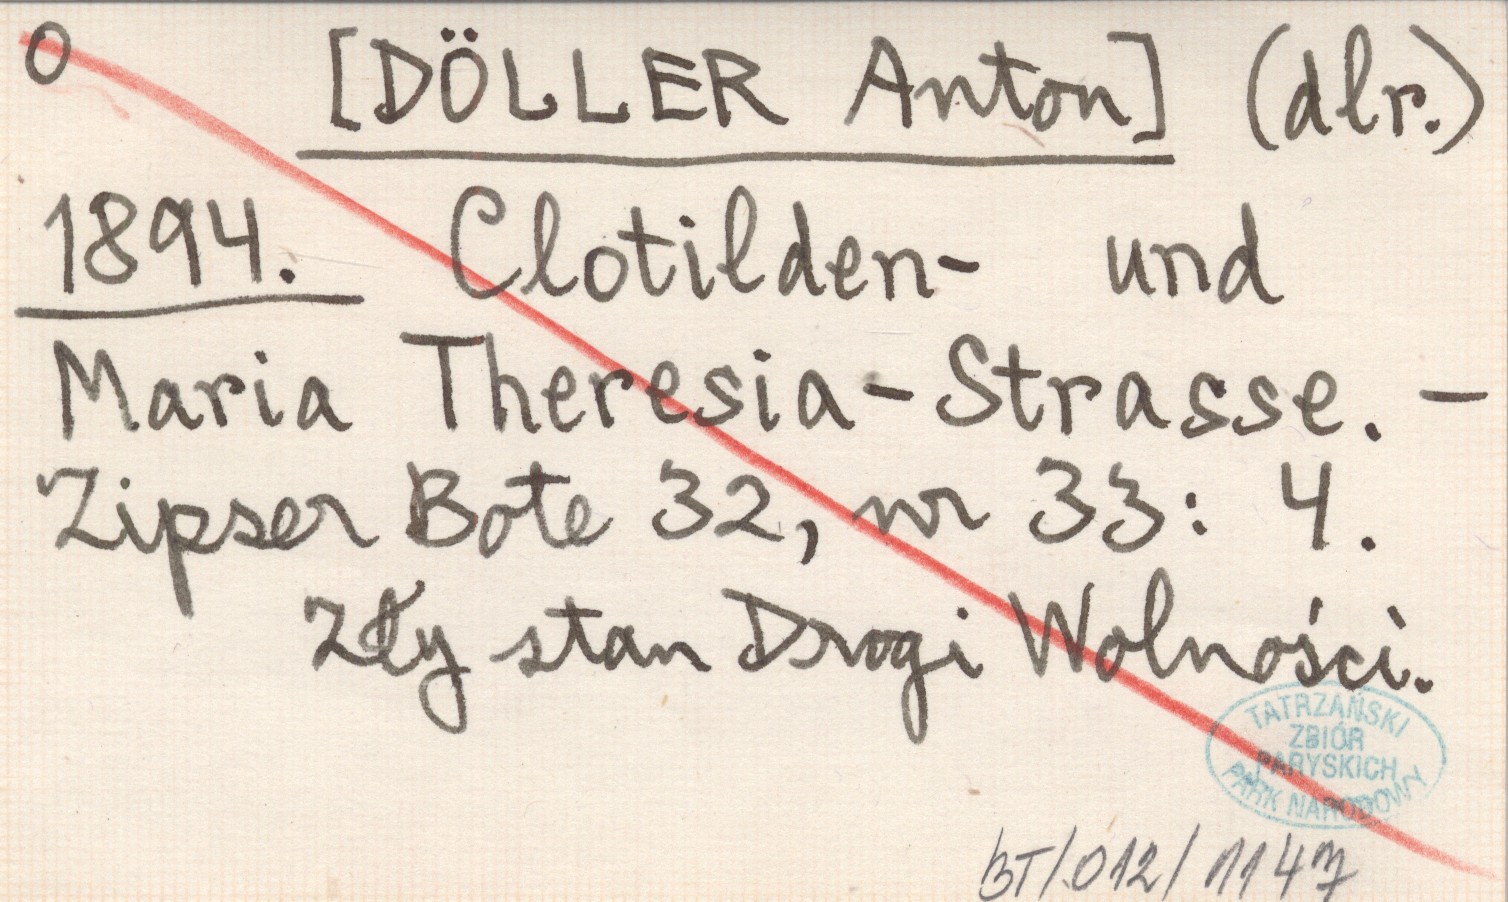 O [DÖLLER Anton] (dlr.)
1894. Clotilden- und
Maria Theresia-Strasse. -
Zipser Bote 32, nr 33: 4.
Zły stan Drogi Wolności.
TATRZAŃSKI
ZBIÓR
PARYSKICH
PARK NARODOWY
BT/012/1147